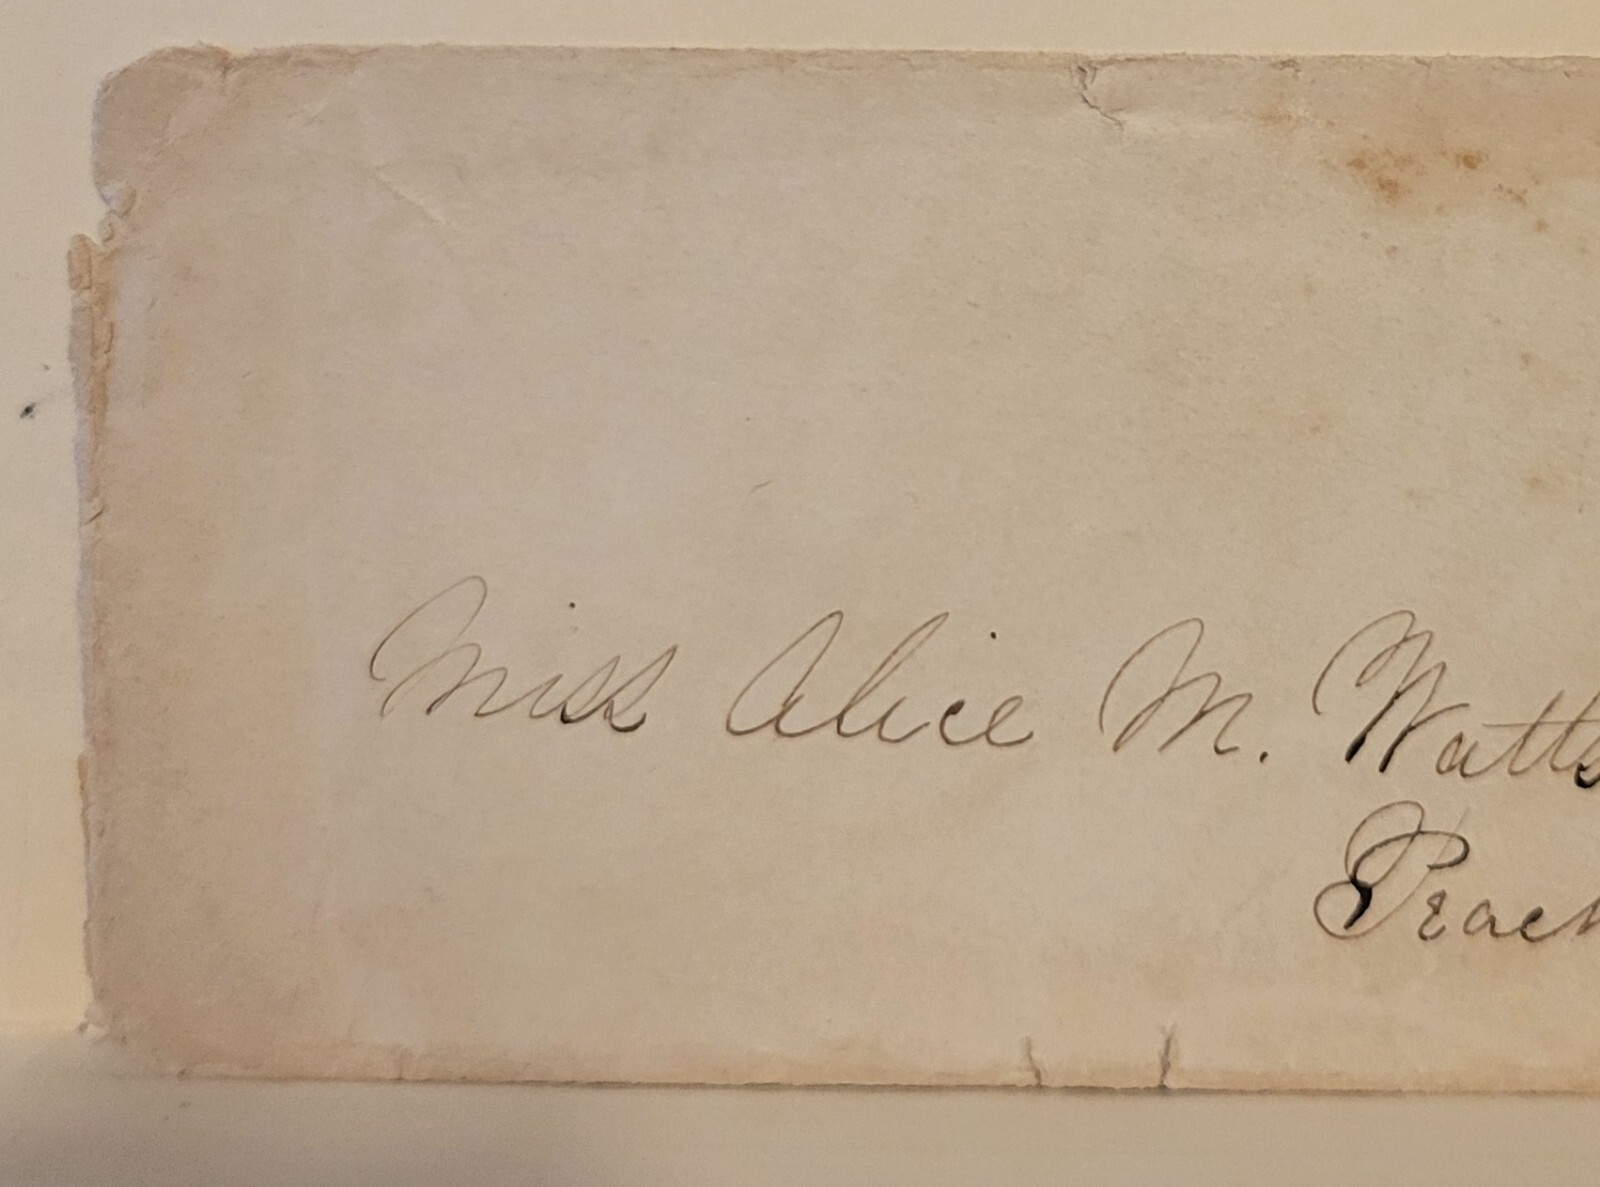 Miss Alice M. Watts
Peach